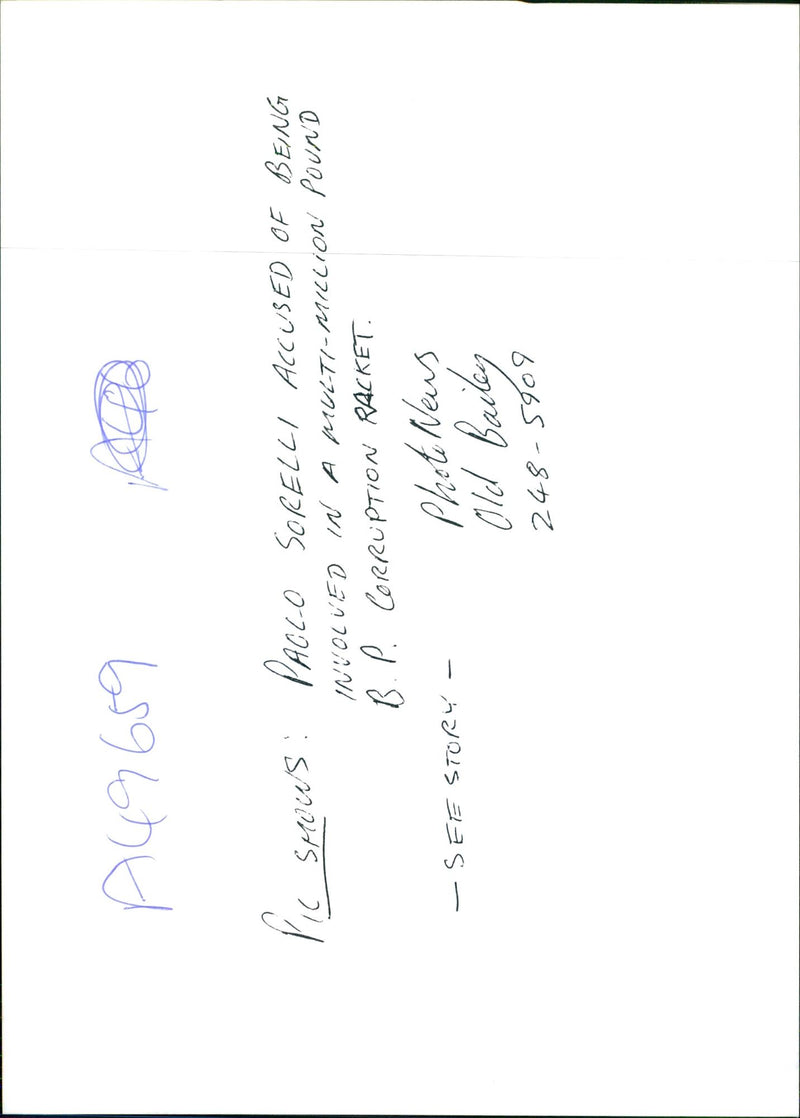 A49659
PIC SHOWS: PAOLO SORELLI ACCUSED OF BEING
INVOLVED IN A MULTI-MILLION POUND
B.P. CORRUPTION RACKET.
— SEE STORY —
Photo News
Old Bailey
248-5909